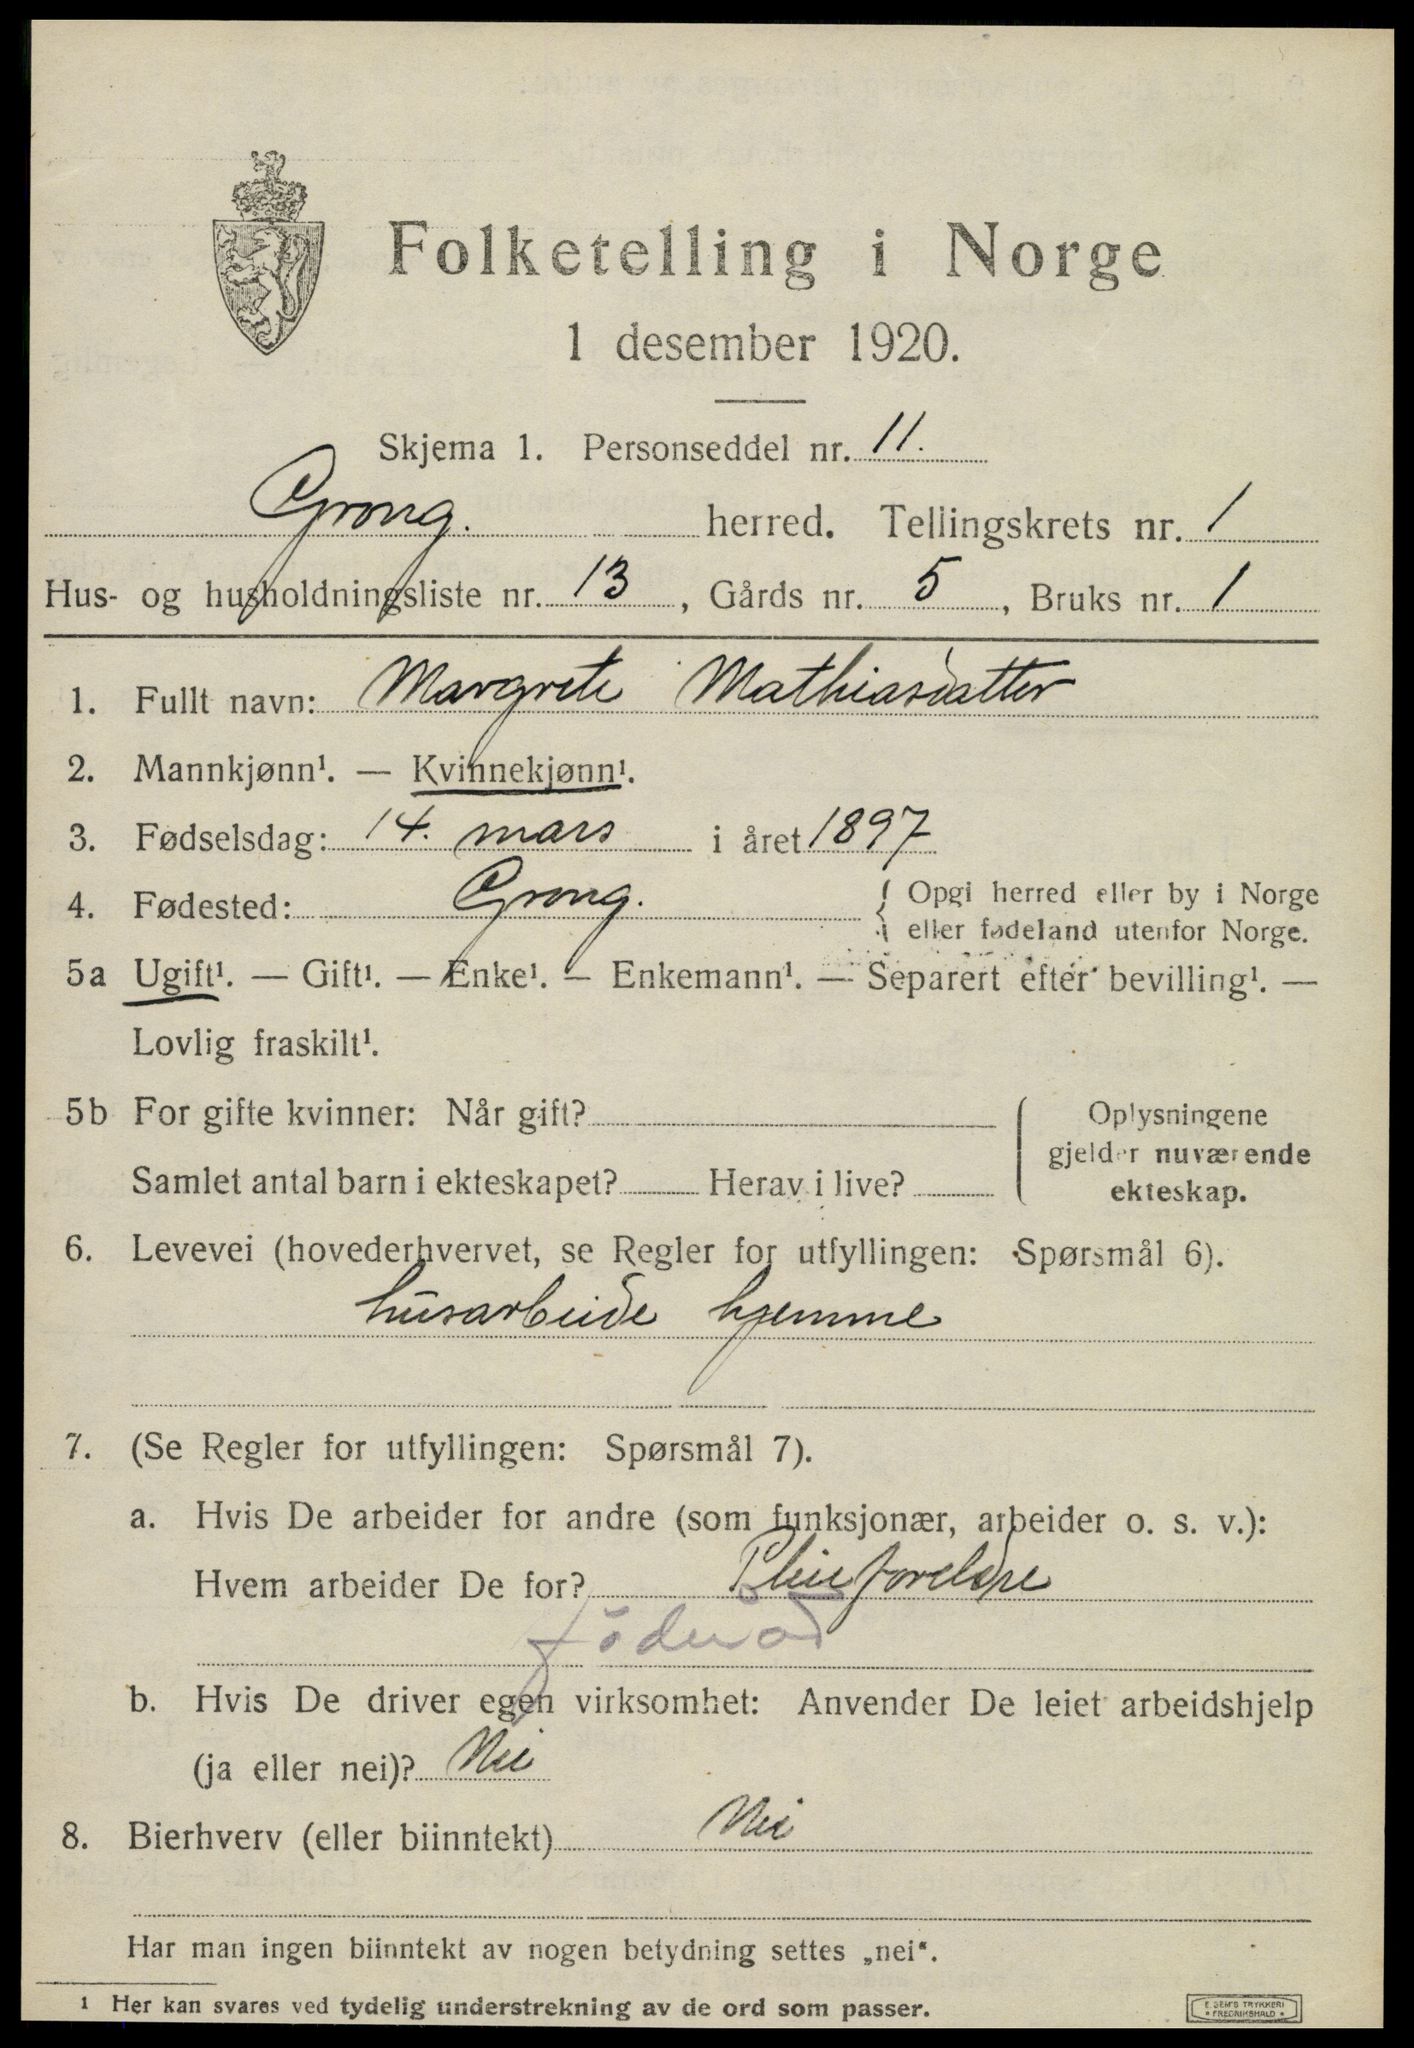 Folketelling i Norge
1 desember 1920.
Skjema 1. Personseddel nr. 11.
Grong. herred. Tellingskrets nr. 1
Hus- og husholdningsliste nr. 13, Gårds nr. 5, Bruks nr. 1
1. Fullt navn: Margrete Mathiasdatter
2. Mannkjønn¹. — Kvinnekjønn¹.
3. Fødselsdag: 14. mars i året 1897
4. Fødested: Grong. { Opgi herred eller by i Norge
eller fødeland utenfor Norge.
5a Ugift¹. — Gift¹. — Enke¹. — Enkemann¹. — Separert efter bevilling¹. —
Lovlig fraskilt¹.
5b For gifte kvinner: Når gift? Oplysningene
gjelder nuværende
Samlet antal barn i ekteskapet? Herav i live? ekteskap.
6. Levevei (hovederhvervet, se Regler for utfyllingen: Spørsmål 6).
husarbeide hjemme
7. (Se Regler for utfyllingen: Spørsmål 7).
a. Hvis De arbeider for andre (som funksjonær, arbeider o. s. v.):
Hvem arbeider De for? Pleieforeldre
föderåd
b. Hvis De driver egen virksomhet: Anvender De leiet arbeidshjelp
(ja eller nei)? Nei
8. Bierhverv (eller biinntekt) Nei
Har man ingen biinntekt av nogen betydning settes „nei“.
¹ Her kan svares ved tydelig understrekning av de ord som passer.
E. SEM'S TRYKKERI
* FREDRIKSHALD *